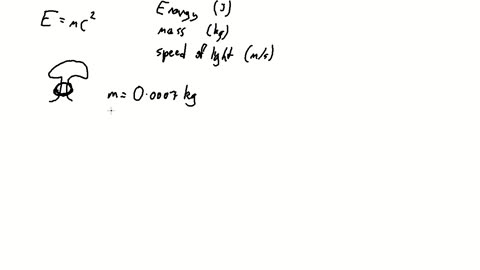 E = mc²
Energy (J)
mass (kg)
speed of light (m/s)
m = 0.0007 kg